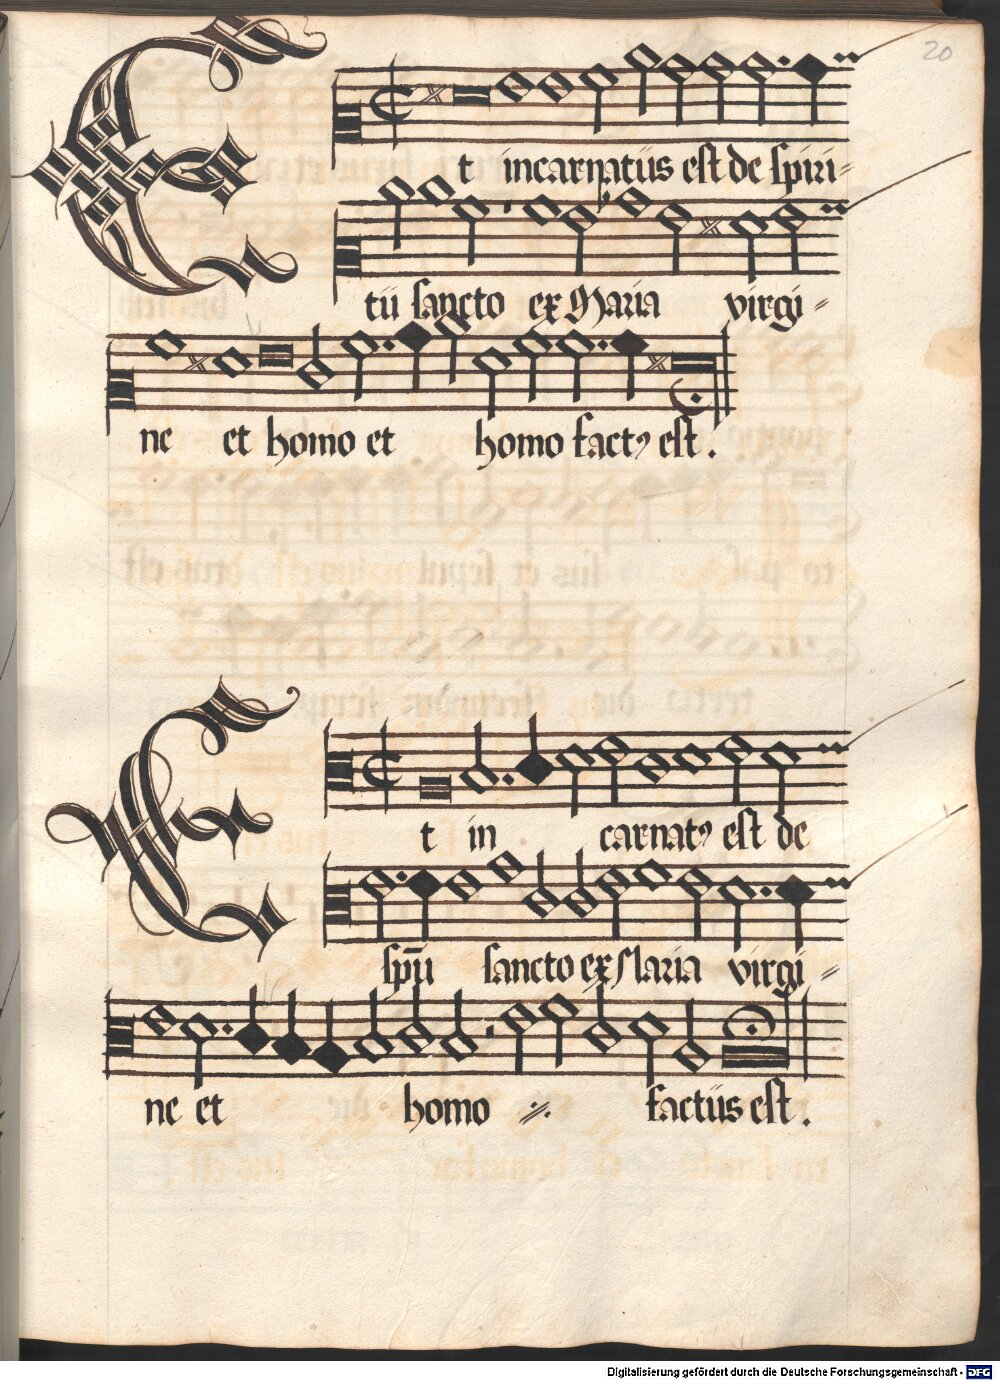 20
Et incarnatus est de spiri-
tu sancto ex Maria virgi-
ne et homo et homo factꝰ est.
Et in carnatꝰ est de
spū sancto ex Maria virgi-
ne et homo :// factus est.
Digitalisierung gefördert durch die Deutsche Forschungsgemeinschaft - DFG